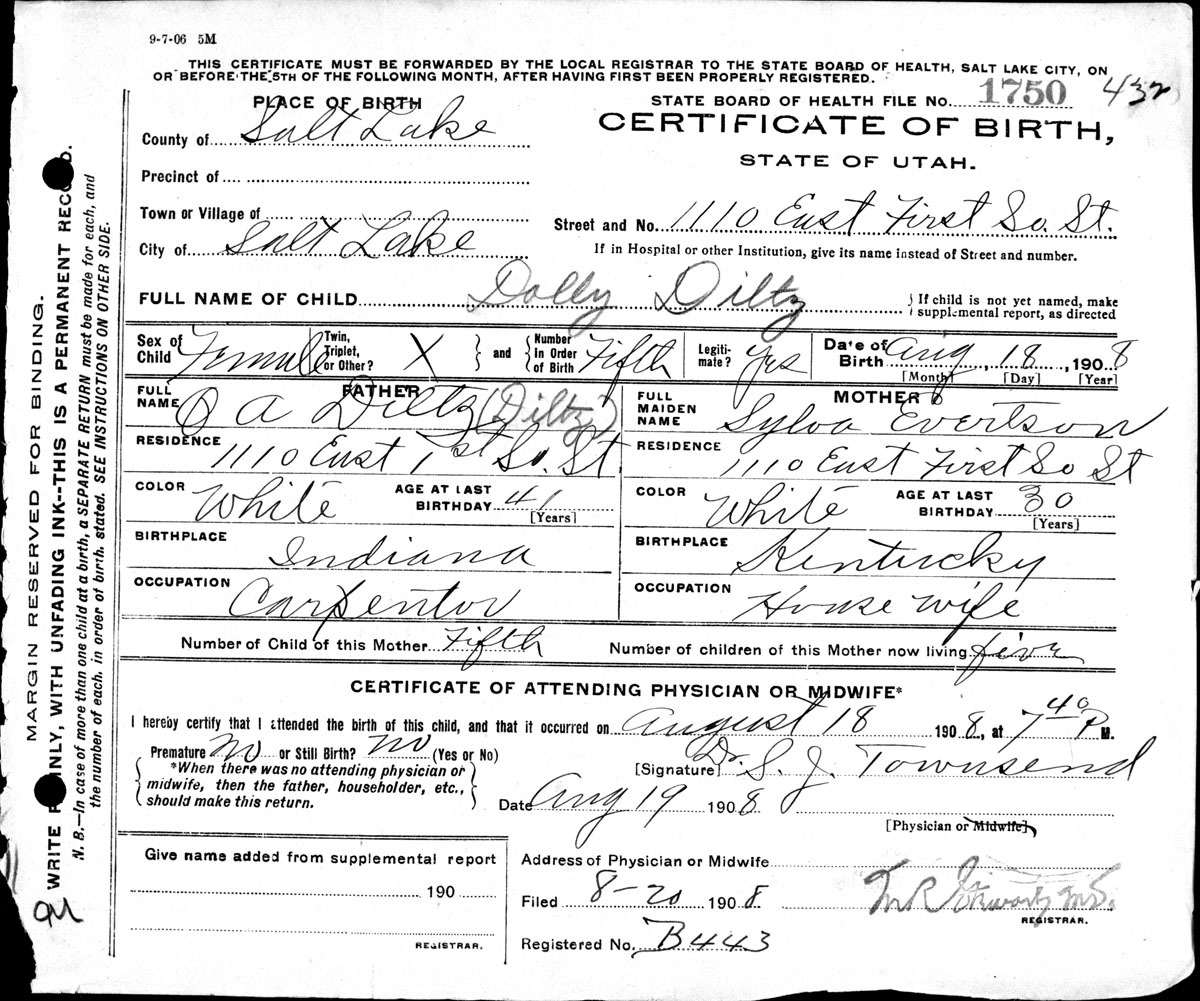 9-7-06 5M
THIS CERTIFICATE MUST BE FORWARDED BY THE LOCAL REGISTRAR TO THE STATE BOARD OF HEALTH, SALT LAKE CITY, ON
OR BEFORE THE 5TH OF THE FOLLOWING MONTH, AFTER HAVING FIRST BEEN PROPERLY REGISTERED.
STATE BOARD OF HEALTH FILE No. 1750 432
PLACE OF BIRTH
CERTIFICATE OF BIRTH,
STATE OF UTAH.
County of Salt Lake
Precinct of
Town or Village of
Street and No. 1110 East First So. St.
City of Salt Lake
If in Hospital or other Institution, give its name instead of Street and number.
FULL NAME OF CHILD Dolly Diltz
If child is not yet named, make
supplemental report, as directed
Sex of Child Female
Twin, Triplet, or Other? X
and
Number In Order of Birth Fifth
Legiti-mate? Yes
Date of Birth Aug, 18, 1908
[Month] [Day] [Year]
FATHER
FULL NAME O A Diltz (Diltz)
RESIDENCE 1110 East 1st So. St.
COLOR White AGE AT LAST BIRTHDAY 41
[Years]
BIRTHPLACE Indiana
OCCUPATION Carpentor
MOTHER
FULL MAIDEN NAME Sylva Evertson
RESIDENCE 1110 East First So St
COLOR White AGE AT LAST BIRTHDAY 30
[Years]
BIRTHPLACE Kentucky
OCCUPATION House wife
Number of Child of this Mother Fifth
Number of children of this Mother now living five
CERTIFICATE OF ATTENDING PHYSICIAN OR MIDWIFE*
I hereby certify that I attended the birth of this child, and that it occurred on August 18 1908, at 7 40 P M.
Premature no or Still Birth? no (Yes or No)
*When there was no attending physician or
midwife, then the father, householder, etc.,
should make this return.
[Signature] Dr. S. J. Townsend
Date Aug 19 1908
[Physician or Midwife]
Give name added from supplemental report
190
REGISTRAR.
Address of Physician or Midwife
Filed 8-20 1908.
REGISTRAR.
Registered No. B443
MARGIN RESERVED FOR BINDING.
WRITE PLAINLY, WITH UNFADING INK--THIS IS A PERMANENT RECORD.
N. B.—In case of more than one child at a birth, a SEPARATE RETURN must be made for each, and
the number of each, in order of birth, stated. SEE INSTRUCTIONS ON OTHER SIDE.